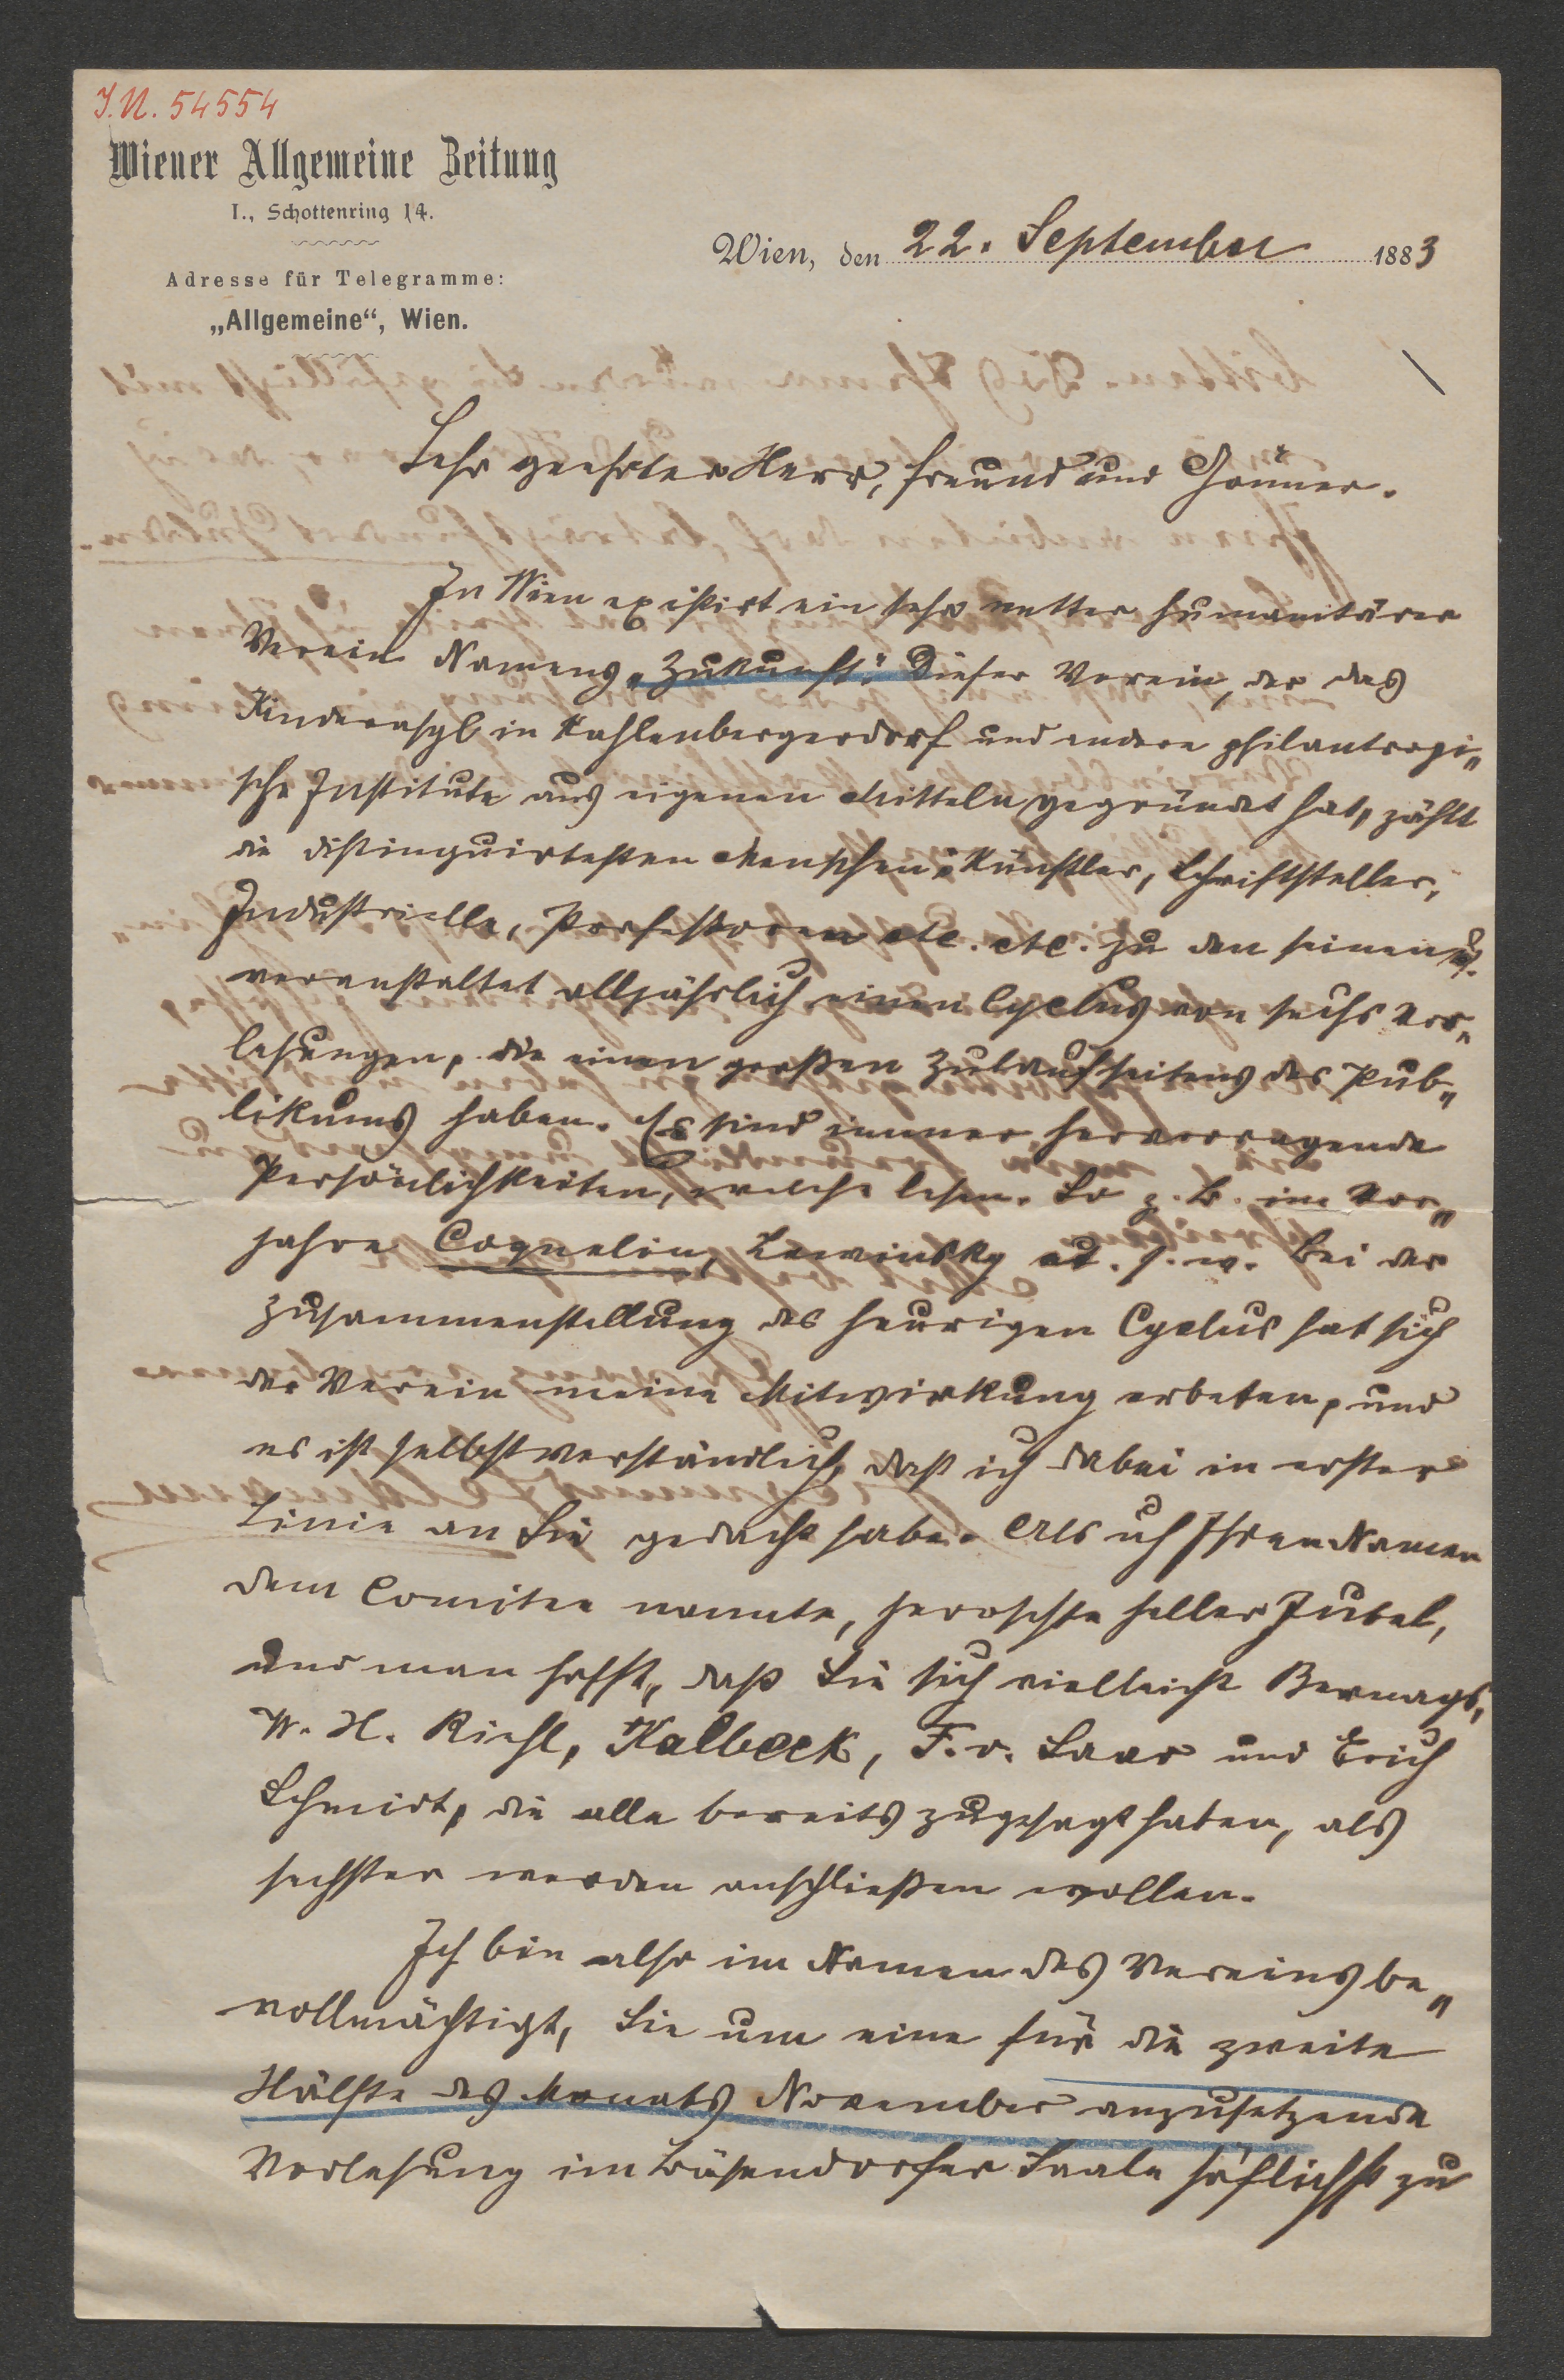 I.N. 54554
Wiener Allgemeine Zeitung
I., Schottenring 14.
Adresse für Telegramme:
„Allgemeine“, Wien.
Wien, den 22. September 1883
Sehr geehrter Herr, Freund und Gönner.
In Wien existirt ein sehr netter humanitärer
Verein Namens „Zukunft“. Dieser Verein, der das
Kinderasyl in Kahlenbergerdorf und andere philantropi„
sche Institute aus eigenen Mitteln gegründet hat, zählt
die distinguirtesten Menschen: Künstler, Schriftsteller,
Industrielle, Professoren etc. etc. zu den seinen u.
veranstaltet alljährlich einen Cyclus von sechs Vor„
lesungen, die einen großen Zulauf seitens des Pub„
likums haben. Es sind immer hervorragende
Persönlichkeiten, welche lesen. So z. B. im Vor„
jahre Coquelin, Lewinsky u. s. w. Bei der
Zusammenstellung des heurigen Cyclus hat sich
der Verein meine Mitwirkung erbeten, und
es ist selbstverständlich, daß ich dabei in erster
Linie an Sie gedacht habe. Als ich Ihren Namen
dem Comitee nannte, herrschte heller Jubel,
und man hofft, daß Sie sich vielleicht
W. H. Riehl, Kalbeck, F. v. Saar und Erich
Schmidt, die alle bereits zugesagt haben, als
sechster werden anschließen wollen.
Ich bin also im Namen des Vereins be„
vollmächtigt, Sie um eine für die zweite
Hälfte des Monats November anzusetzende
Vorlesung im Bösendorfer Saale höflichst zu